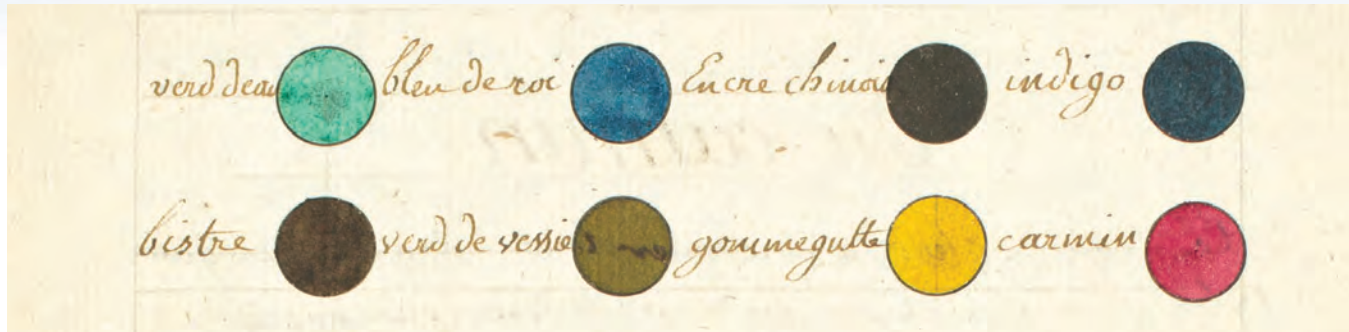 verd deau bleu de roi Encre chinois indigo
bistre verd de vessie gomme gutte carmin